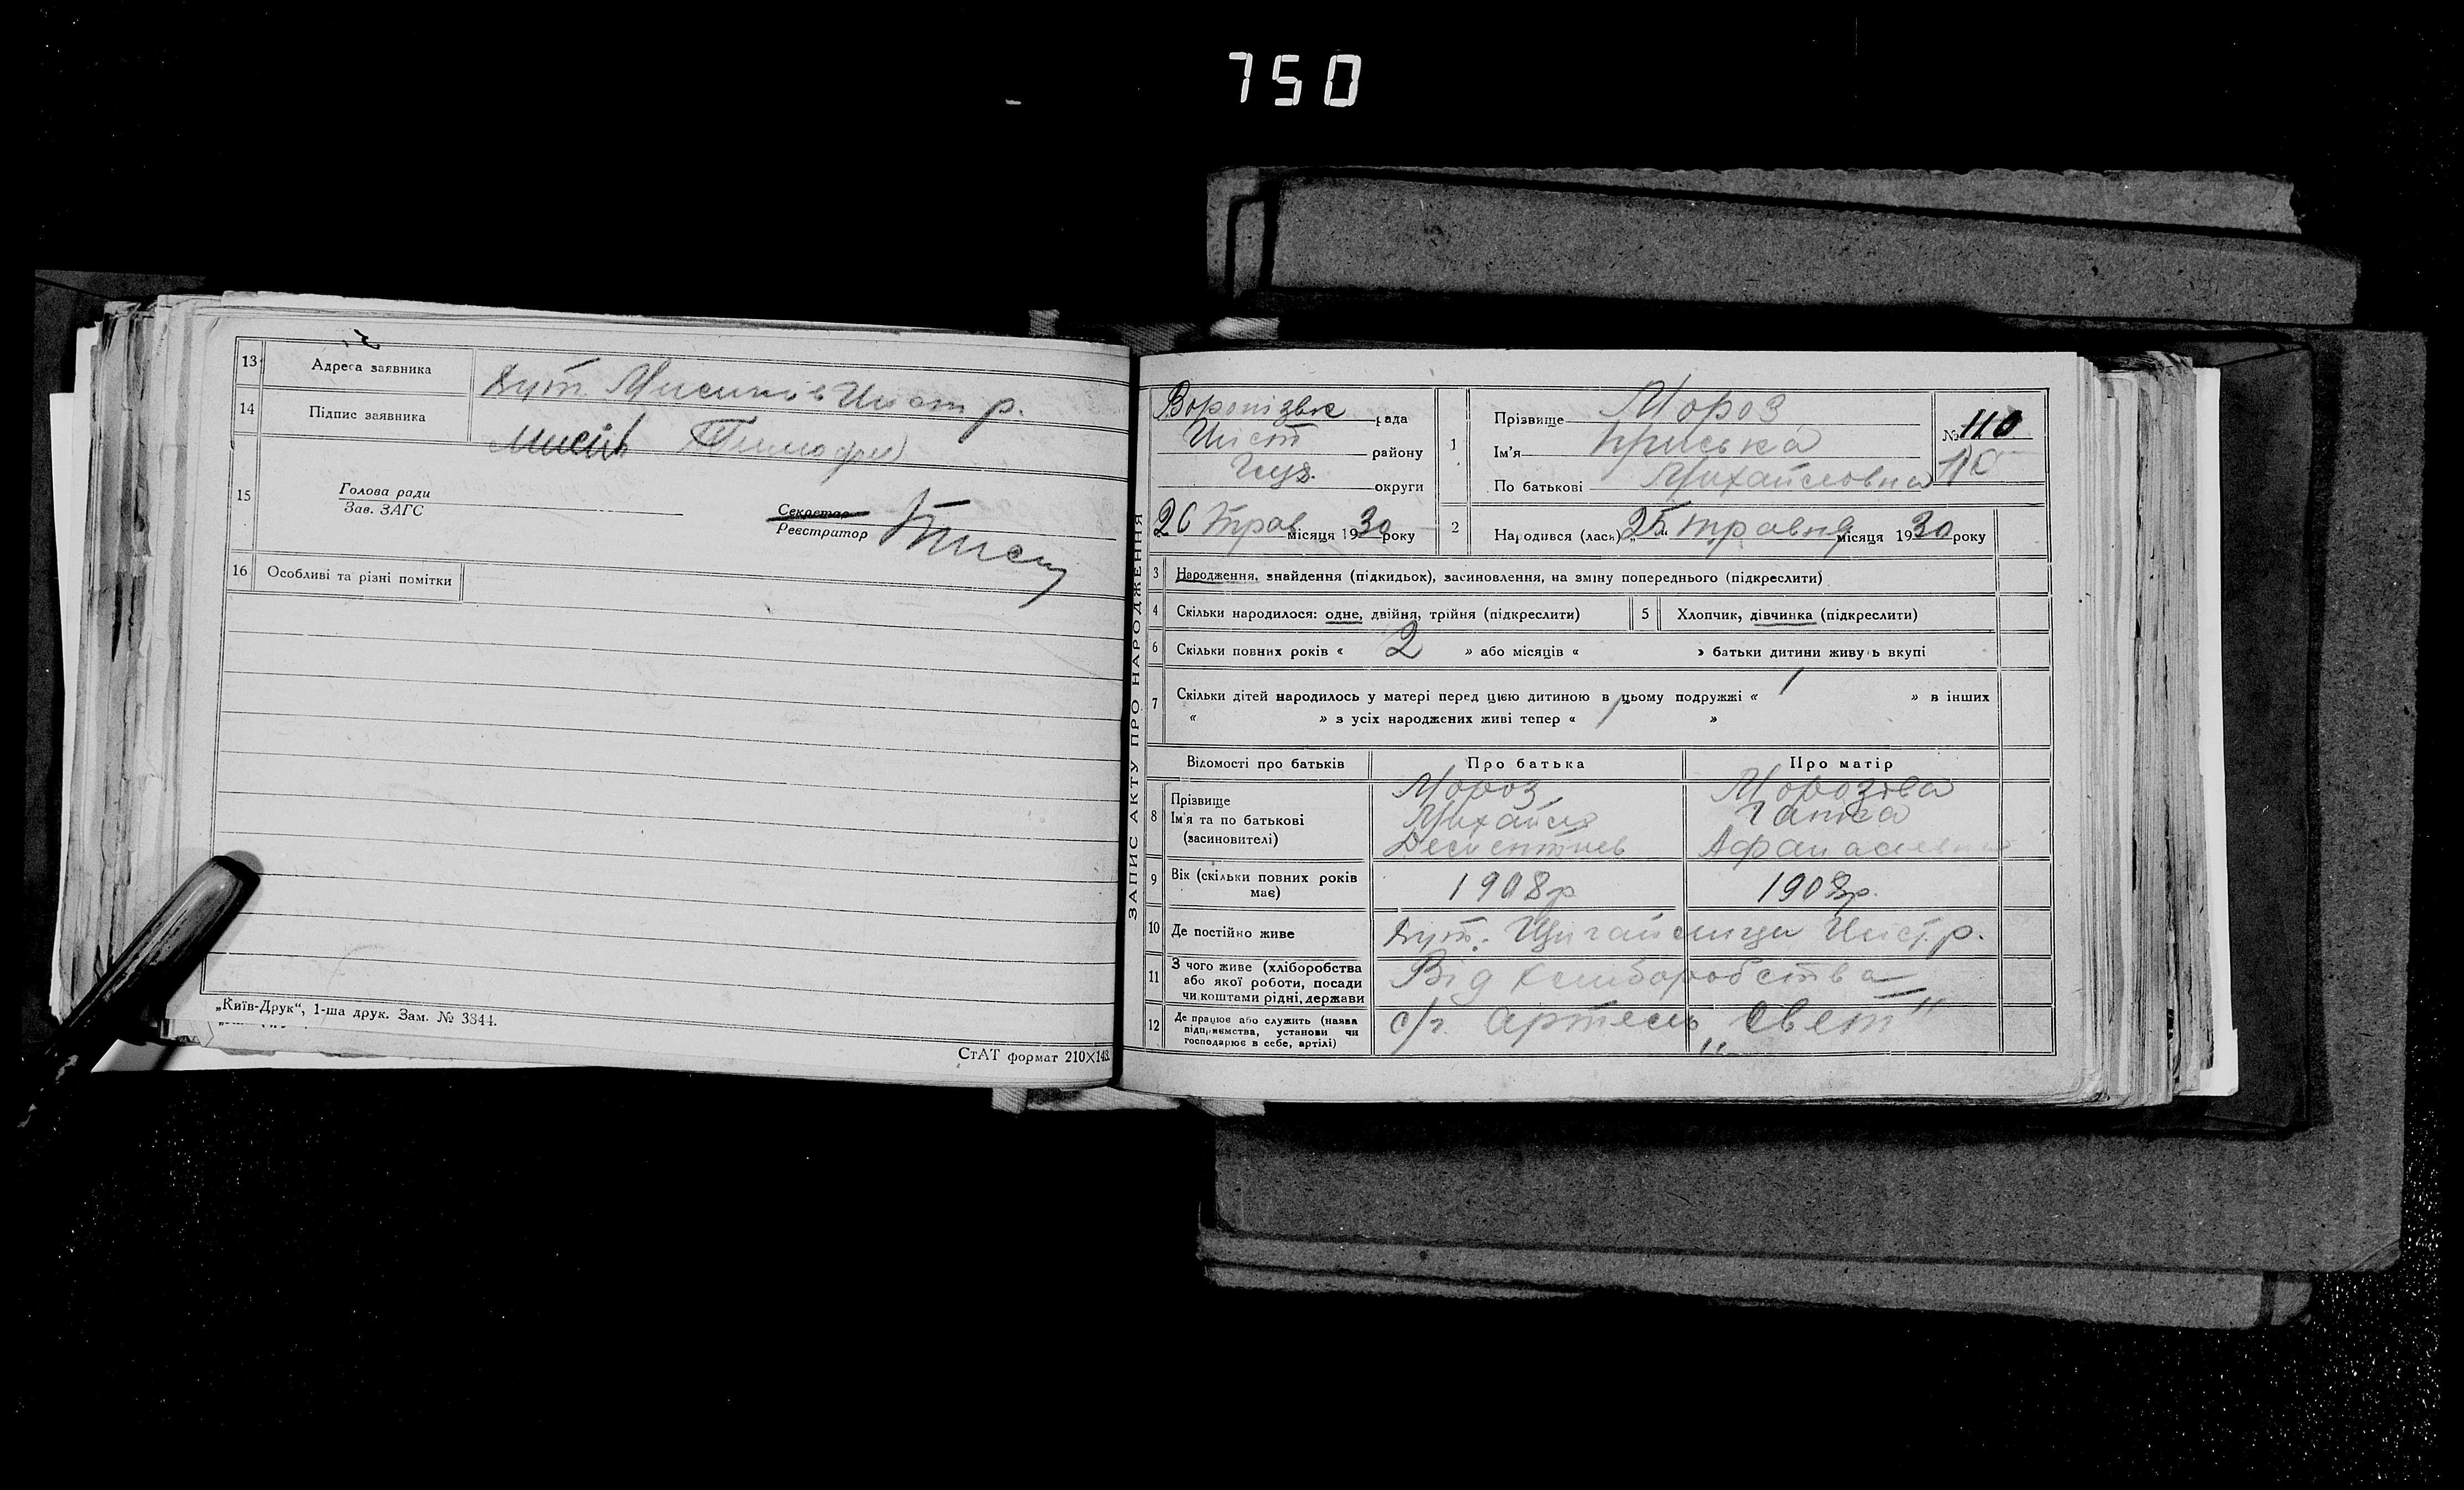 750
13 Адреса заявника хут. Мисиків Чист р.
14 Підпис заявника Мисів Тимофей
15 Голова ради
Зав. ЗАГС
Секретар
Реєстратор
16 Особливі та різні помітки
„Київ-Друк“, 1-ша друк. Зам. № 3344.
СтАТ формат 210×148.
ЗАПИС АКТУ ПРО НАРОДЖЕННЯ
рада
району
округи
26 Трав місяця 1930 року
1 Прізвище Мороз
Ім'я Приська
По батькові Михайловна
№ 110
110
2 Народився (лась) „25“ травня місяця 1930 року
3 Народження, знайдення (підкидьох), засиновлення, на зміну попереднього (підкреслити)
4 Скільки народилося: одне, двійня, трійня (підкреслити) 5 Хлопчик, дівчинка (підкреслити)
6 Скільки повних років « 2 » або місяців « » батьки дитини живуть вкупі
7 Скільки дітей народилось у матері перед цією дитиною в цьому подружжі « 1 » в інших
« » з усіх народжених живі тепер « 1 »
Відомості про батьків Про батька Про матір
8 Прізвище Мороз Морозова
Ім'я та по батькові Михайло Ганна
(засиновителі) Афанасиевна
9 Вік (скільки повних років має) 1908р 1908р.
10 Де постійно живе хут. Чист. р.
11 З чого живе (хліборобства або якої роботи, посади чи коштами рідні, держави Від хлиборобства
12 Де працює або служить (назва підприємства, установи чи господарює в себе, артілі) с/г. артель „Свет"